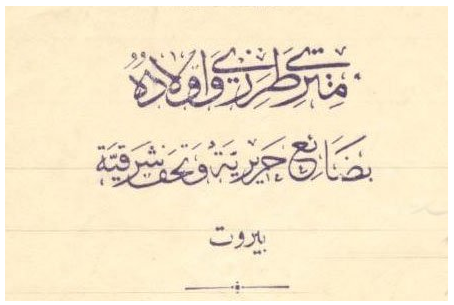 متري طرزي واولاده
بضائع حريرية وتحف شرقية
بيروت